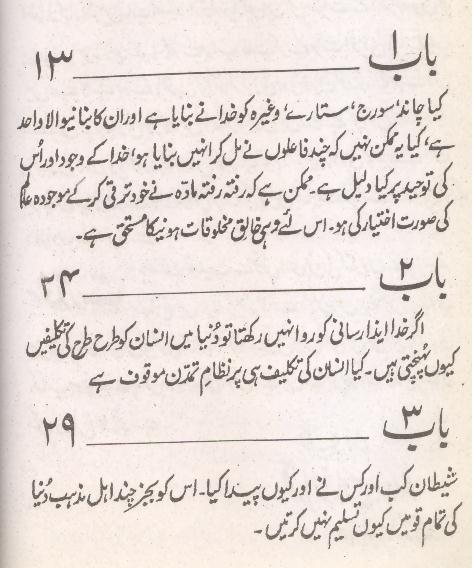 باب ۱ ۱۳
کیا چاند، سورج، ستارے، وغیرہ کو خدا نے بنایا ہے اور ان کا بنانیوالا واحد
ہے، کیا یہ ممکن نہیں کہ چند فاعلوں نے مل کر انہیں بنایا ہو، خدا کے وجود اور اُس
کی توحید پر کیا دلیل ہے۔ ممکن ہے کہ رفتہ رفتہ مادّہ نے خود ترقی کر کے موجودہ عالم
کی صورت اختیار کی ہو۔ اس لئے وہی خالق مخلوقات ہونیکا مستحق ہے۔
باب ۲ ۲۴
اگر خدا ایذا رسانی کو روا نہیں رکھتا تو دُنیا میں انسان کو طرح طرح کی تکلیفیں
کیوں پُہنچتی ہیں۔ کیا انسان کی تکلیف ہی پر نظامِ تمدّن موقوف ہے
باب ۳ ۲۹
شیطان کب اور کس نے اور کیوں پیدا کیا۔ اس کو بجز چند اہل مذہب دُنیا
کی تمام قومیں کیوں تسلیم نہیں کرتیں۔